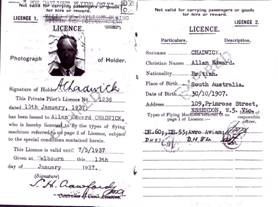 Not valid for carrying passengers or goods
for hire or reward.
LICENCE 1.
LICENCE.
Photograph of Holder.
Signature of Holder AChadwick
This Private Pilot's Licence No. 1236
dated 13th January, 1937
has been issued to Allan Edward CHADWICK,
who is hereby licensed to fly the types of flying
machines referred to on page 2 of Licence, subject to the
special conditions contained herein.
This Licence is valid until 7/3/1937
Given at Melbourne this 13th
day of January 1937.
Not valid for carrying passengers or goods
for hire or reward.
LICENCE 2.
LICENCE.
Particulars. Described.
Surname CHADWICK.
Christian Names Allan Edward.
Nationality British.
Place of Birth South Australia.
Date of Birth 30/10/1907.
Address 109, Primrose Street,
ESSENDON, W.5. Vic.
Types of Flying Machines for which Licence is